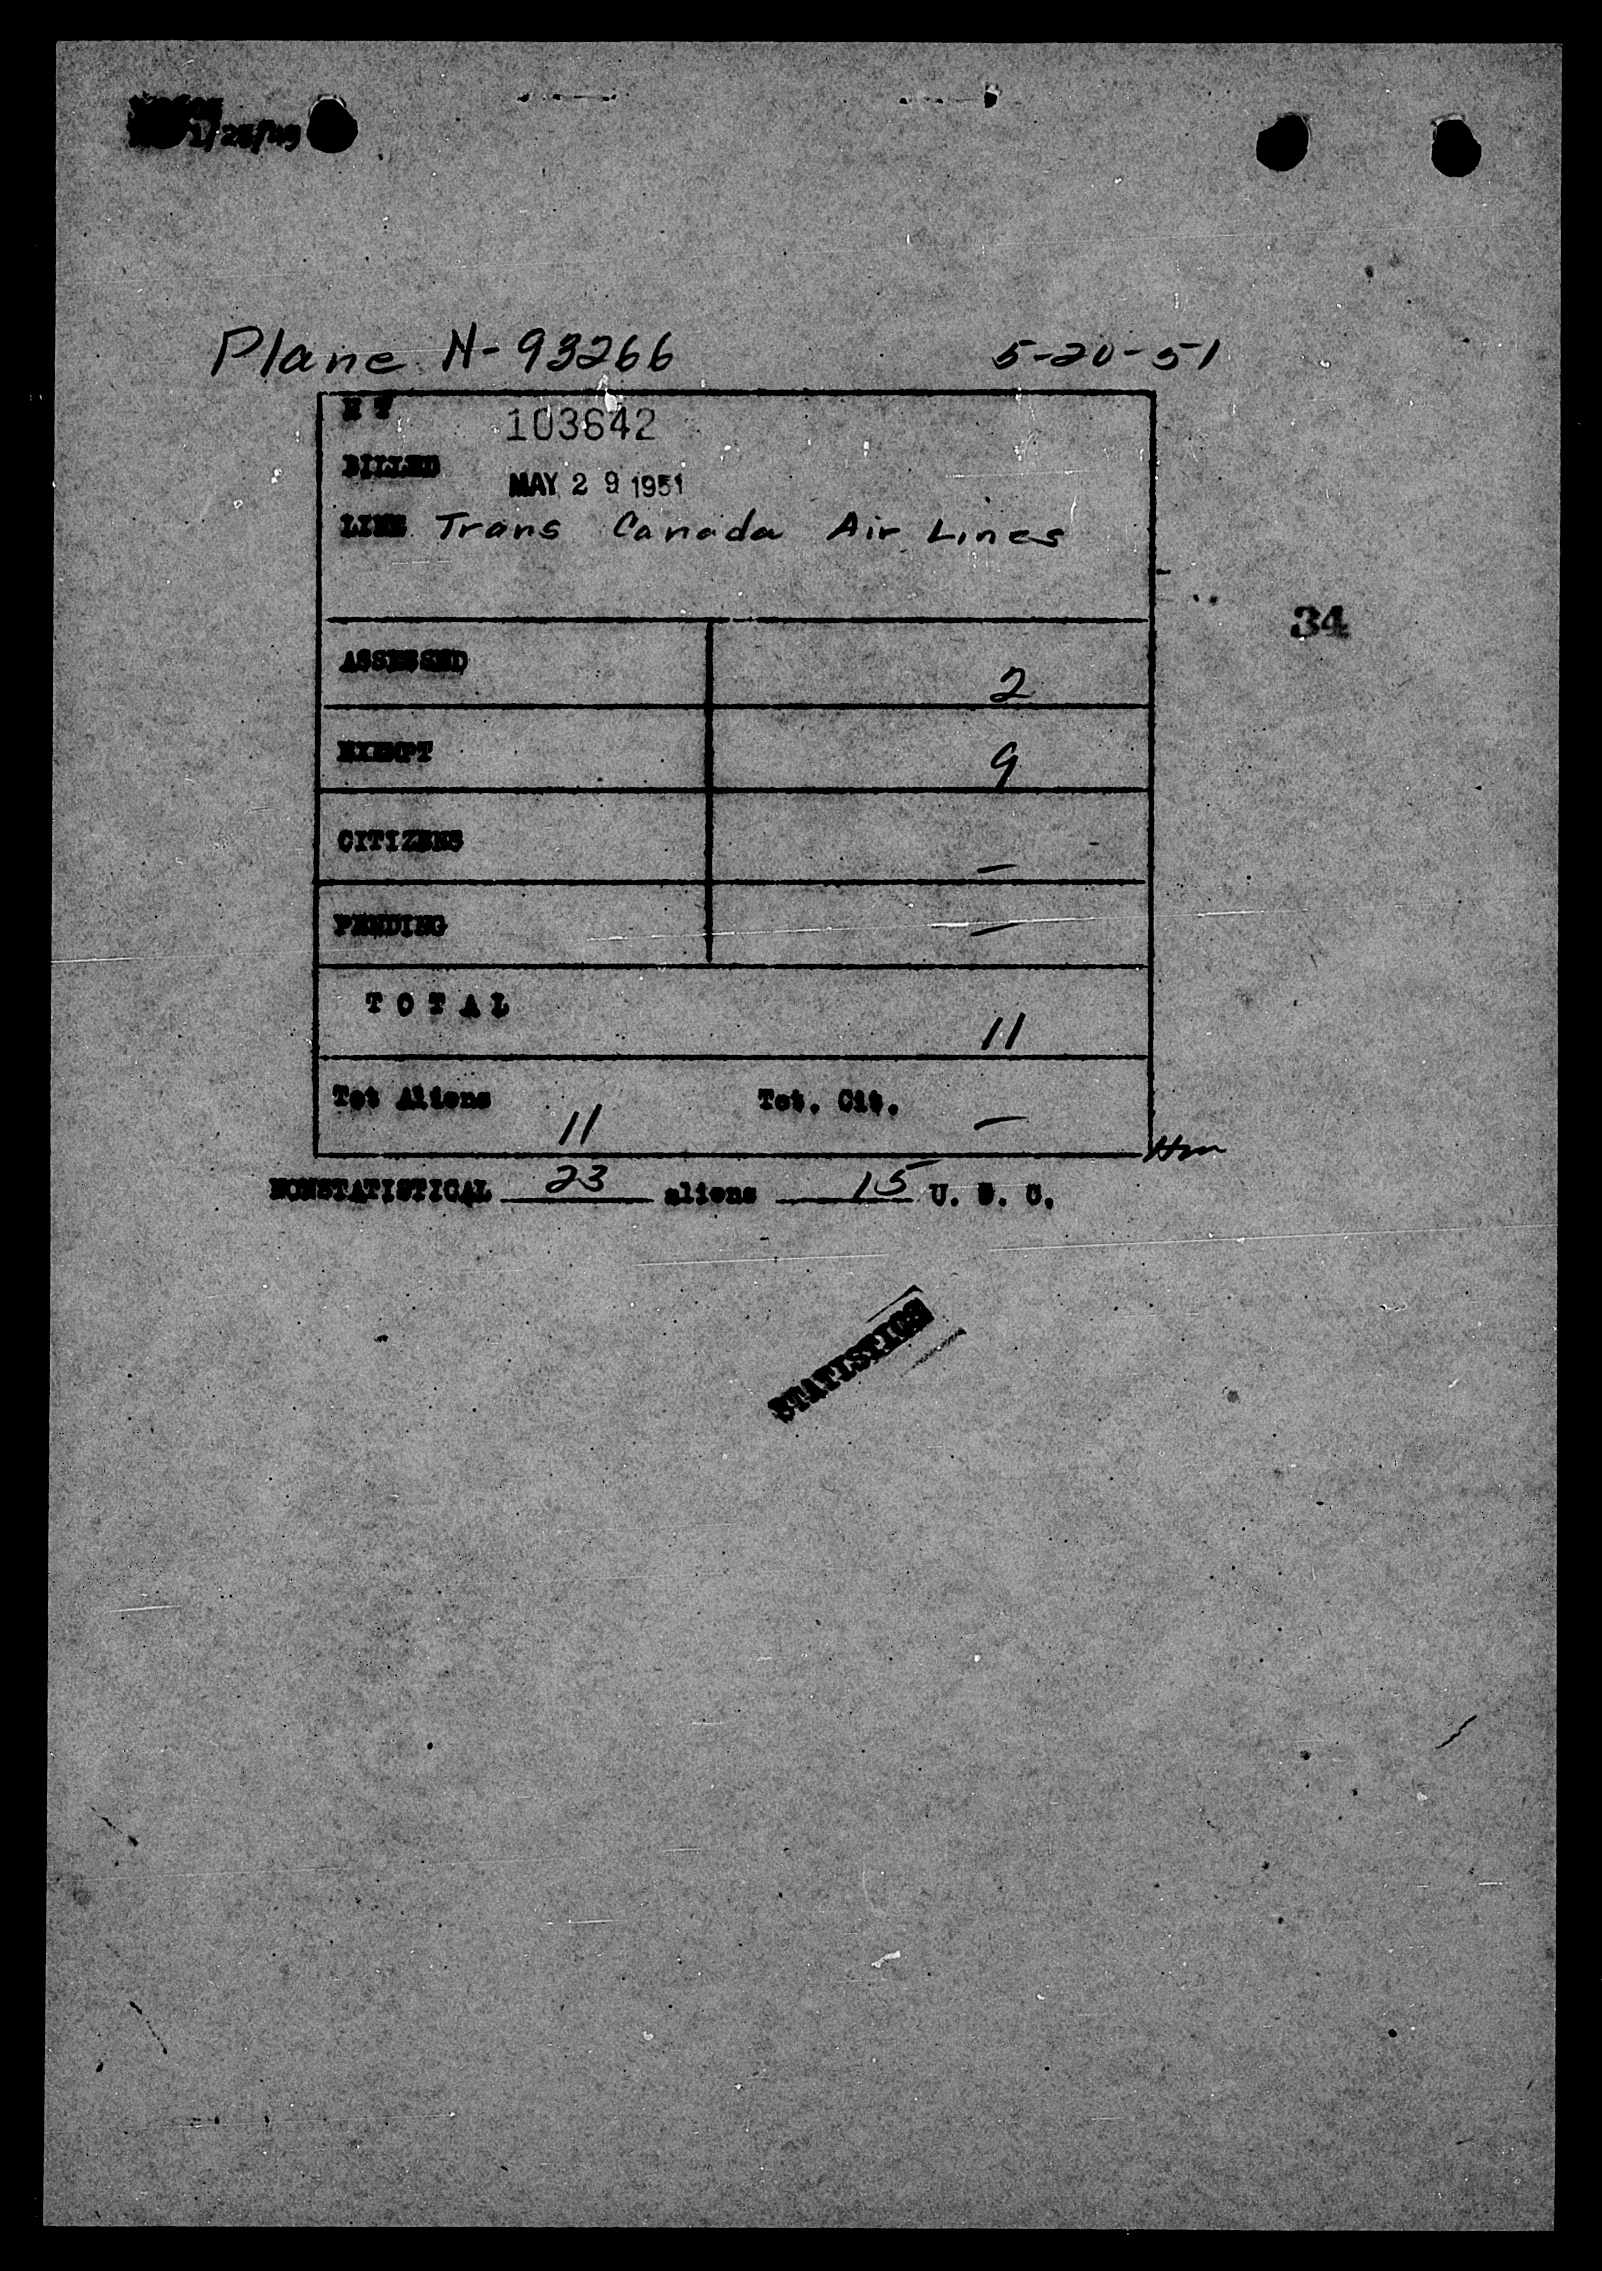 1/25/49
Plane N-93266 5-20-51
103642
BILLED MAY 29 1951
LINE Trans Canada Air Lines
34
ASSESSED 2
EXEMPT 9
CITIZENS —
PENDING —
TOTAL 11
Tot Aliens 11 Tot. Cit. —
NONSTATISTICAL 23 aliens 15 U. S. C.
STATISTICS